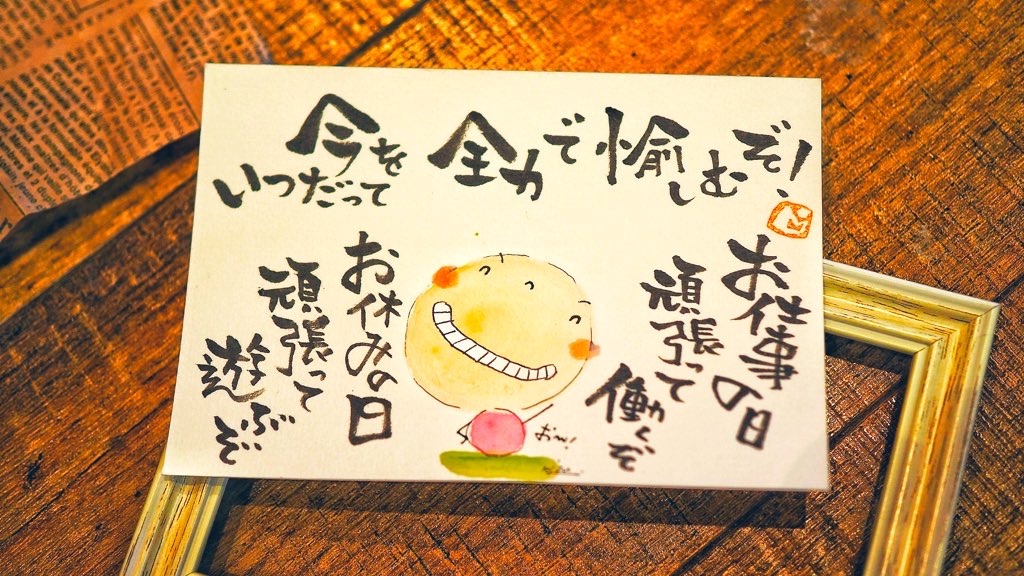 いつだって
今を
全力で愉しむぞ!
お仕事の日
頑張って
働くぞ
お休みの日
頑張って
遊ぶぞ